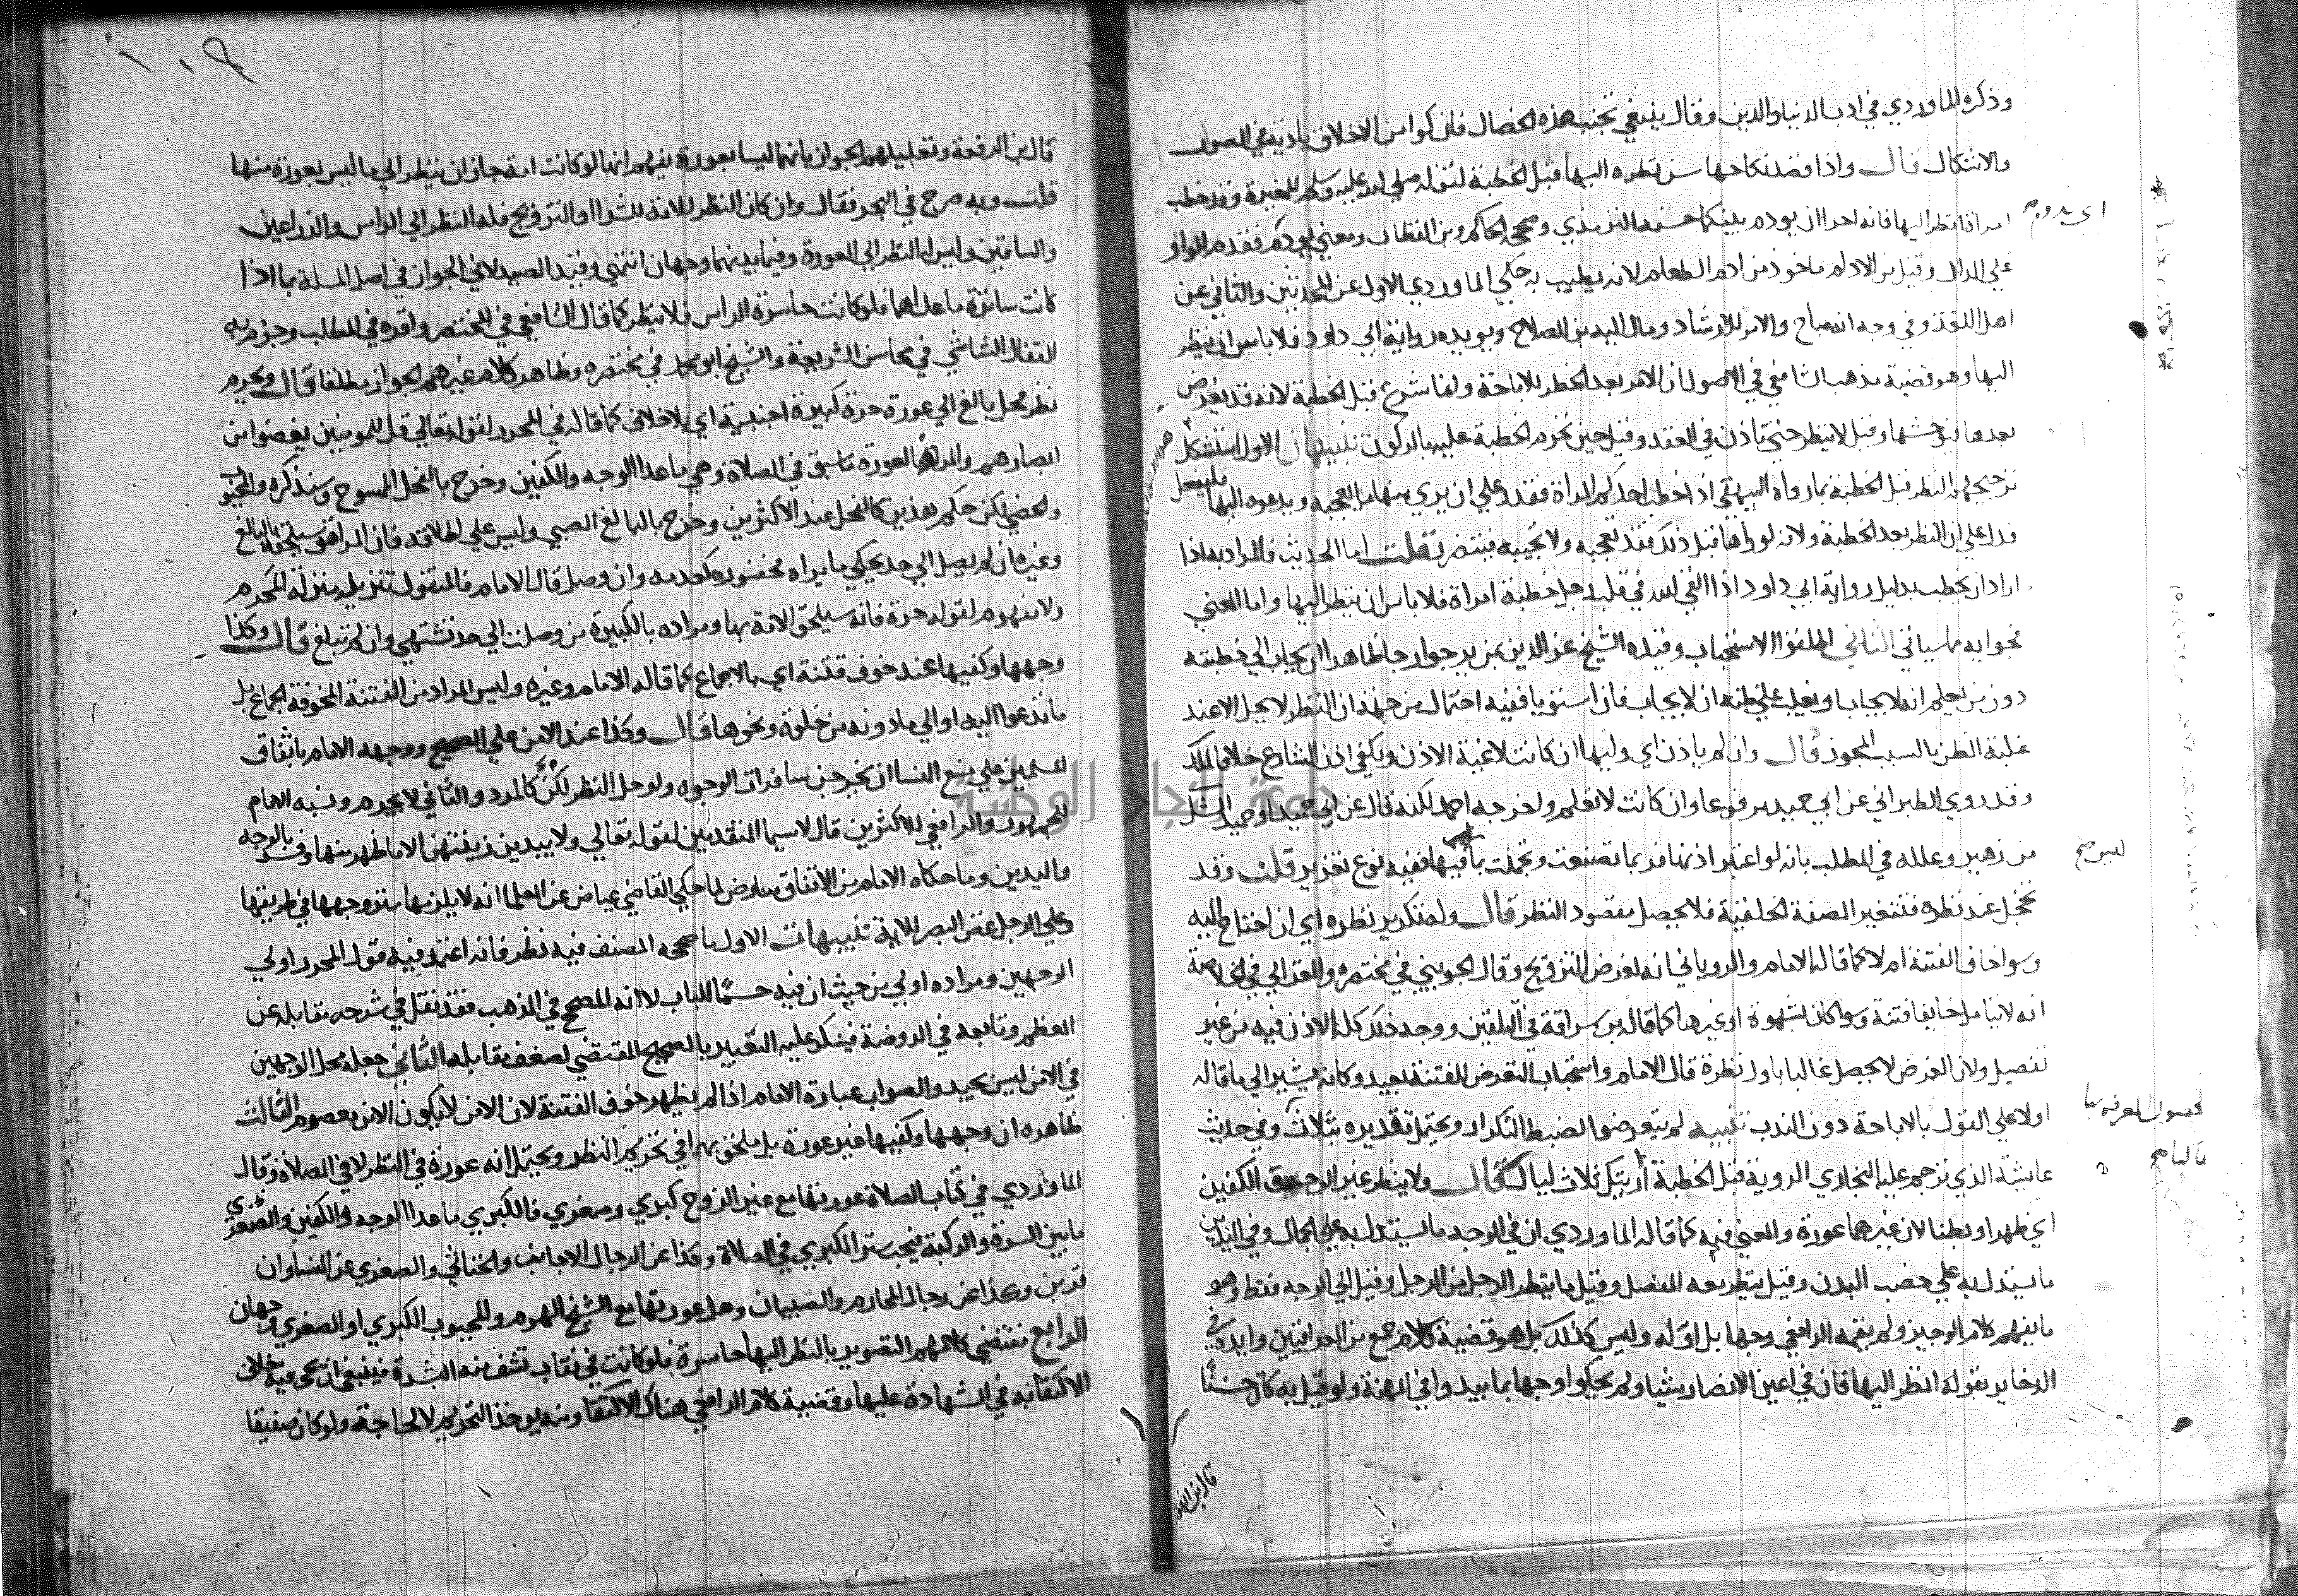 وذكره الماوردي في ادب الدنيا والدين وقال ينبغي تجنب هذه الخصال فان كوامن الاخلاق بادية في الصور
والاشكال قال واذا قصد نكاحها سن نظره اليها قبل الخطبة لقوله صلي الله عليه وسلم للمغيرة وقد خطب
امراة انظر اليها فانه احرا ان يودم بينكما حسنه الترمذي وصححه الحاكم وبن القطان ومعني يودم فقدم الواو
علي الدال وقيل من الادام ماخوذ من ادم الطعام لانه يطيب به حكي الماوردي الاول عن المحدثين والثاني عن
اهل اللغة وفي وجه انه مباح والامر للارشاد ومال اليه بن الصلاح ويويده رواية ابي داود فلا باس ان ينظر
اليها وهو قضية مذهب الشافعي في الاصول ان الامر بعد الحظر للاباحة وانما شرع قبل الخطبة لانه قد يعرض
بعدها وقيل لا ينظر حتي تاذن في العقد وقيل حين تحرم الخطبة عليه بالركون تنبيهان الاول استشكل
ترجيحهم النظر قبل الخطبة بما رواه البيهقي اذا خطب احدكم المراة فقدر علي ان يري منها ما يعجبه ويدعوه اليها فليفعل
فدل علي ان النظر بعد الخطبة ولانه لو راها قبل ذلك فقد تعجبه ولا تجيبه فيتضرر قلت اما الحديث فالمراد به اذا
اراد ان يخطب بدليل رواية ابي داود اذا القي الله في قلب رجل خطبة امراة فلا باس ان ينظر اليها واما المعني
فجوابه ما سياتي الثاني اطلقوا الاستحباب وقيده الشيخ عز الدين بمن يرجو رجا ظاهرا ان يجاب الي خطبته
دون من يعلم انه لا يجاب او يغلب علي ظنه ان لا يجاب فان استويا ففيه احتمال من جهة ان النظر لا يحل الا عند
غلبة الظن بالسبب المجوز قال وان لم ياذن اي وليها ان كانت لاغية الاذن ويكفي اذن الشارع خلافا لمالك
وقد روي الطبراني عن ابي حميد مرفوعا وان كانت لا تعلم واخرجه احمد لكنه قال عن ابي حميد او حميد الشك
من زهير وعلله في المطلب بانه لو اعتبر اذنها فربما تصنعت وتجملت بما ففيه نوع تغرير قلت وقد
تخجل عند نظره فتتغير الصفة الخلقية فلا يحصل مقصود النظر قال وله تكرير نظره اي ان احتاج اليه
وسوا خاف الفتنة ام لا كما قاله الامام والروياني انه لغرض التزويج وقال الجويني في مختصره والغزالي في الخلاصة
انه لا يتامل خايفا فتنة وسوا كان لشهوة او غيرها كما قاله بن سراقة في التلقين ووجه ذلك كله الاذن فيه من غير
تفصيل ولان الغرض لا يحصل غالبا باول نظرة قال الامام واستحباب التعرض للفتنة بعيد وكانه يشير الي ما قاله
اولا علي القول بالاباحة دون الندب تنبيه لم يتعرضوا لضبط التكرار ويحتمل تقديره بثلاث وفي حديث
عايشة الذي ترجم عليه البخاري الروية قبل الخطبة اريتك ثلاث ليال قال ولا ينظر غير الوجه والكفين
اي ظهرا وبطنا لان غيرهما عورة والمعني فيه كما قاله الماوردي ان في الوجه ما يستدل به علي الجمال وفي اليدين
ما يستدل به علي خصب البدن وقيل ينظر معه المفصل وقيل ما ينظر الرجل من الرجل وقيل الي الوجه فقط وهو
ما يفهم كلام الوجيز ولم يقمه الرافعي وجها بل اوله وليس كذلك بل هو قضية كلام جمع من العراقيين وايده في
الدخاير بقوله انظر اليها فان في اعين الانصار شيا ولم يحكوا وجها بما يبدوا في المهنة ولو قيل به كان حسنا
قال بن الرفعة
١٠٩
قال بن الرفعة وتعليلهم الجواز بانهما ليسا بعورة يفهم انها لو كانت امة جاز ان ينظر الي ما ليس بعورة منها
قلت وبه صرح في البحر فقال وان كان النظر للامة للشرا او التزويج فله النظر الي الراس والذراعين
والساقين وليس له النظر الي العورة وفيما بينهما وجهان انتهي وقيد الصيدلاني الجواز في اصل المسلة بما اذا
كانت ساترة ما عداهما فلو كانت حاسرة الراس فلا ينظر كما قال الشافعي في المختصر واقره في المطلب وجزم به
القفال الشاشي في محاسن الشريعة والشيخ ابو محمد في مختصره وظاهر كلام غيرهم الجواز مطلقا قال ويحرم
نظر فحل بالغ الي عورة حرة كبيرة اجنبية اي بلا خلاف كما قاله في المحرر لقوله تعالي قل للمومنين يغضوا من
ابصارهم والمراد بالعورة ما سبق في الصلاة وهي ما عدا الوجه والكفين وخرج بالفحل الممسوح وسنذكره والمجبوب
والخصي لكن حكم هذين كالفحل عند الاكثرين وخرج بالبالغ الصبي وليس علي اطلاقه فان المراهق سيلحقه بالبالغ
وغيره ان لم يصل الي حد يحكي ما يراه فحضوره كعدمه وان وصل قال الامام فالمنقول تنزيله منزلة المحرم
ولا مفهوم لقوله حرة فانه سيلحق الامة بها ومراده بالكبيرة من وصلت الي حد تشتهي وان لم تبلغ قال وكذا
وجهها وكفيها عند خوف فتنة اي بالاجماع كما قاله الامام وغيره وليس المراد من الفتنة المخوفة الجماع بل
ما تدعوا اليه او الي ما دونه من خلوة ونحوها قال وكذا عند الامن علي الصحيح ووجهه الامام باتفاق
المسلمين علي منع النسا ان يخرجن سافرات الوجوه ولو حل النظر لكن كالمرد والثاني لا يحرم ونسبه الامام
للجمهور والرافعي للاكثرين قال لا سيما المتقدمين لقوله تعالي ولا يبدين زينتهن الا ما ظهر منها وفسر بالوجه
واليدين وما حكاه الامام من الاتفاق معارض لما حكي القاضي عياض عن العلما انه لا يلزمها ستر وجهها في طريقها
وعلي الرجل غض البصر للاية تنبيهات الاول ما صححه المصنف فيه نظر فانه اعتمد فيه قول المحرر اولي
الوجهين ومراده اولي من حيث ان فيه حسما للباب لا انه المصحح في المذهب فقد نقل في شرحه مقابله عن
المعظم وتابعه في الروضة فيشكل عليه التعبير بالصحيح المقتضي لضعف مقابله الثاني جعله محل الوجهين
في الامن ليس بجيد والصواب عبارة الامام اذا لم يظهر خوف الفتنة لان الامن لا يكون الا من معصوم الثالث
ظاهره ان وجهها وكفيها غير عورة بل ملحق بها في تحريم النظر ويحتمل انه عورة في النظر لا في الصلاة وقال
الماوردي في كتاب الصلاة عورتها مع غير الزوج كبري وصغري فالكبري ما عدا الوجه والكفين والصغري
ما بين السرة والركبة فيجب ستر الكبري في الصلاة وكذا عن الرجال الاجانب والخناثي والصغري عن النسا وان
قربن وكذا عن رجال المحارم والصبيان وهل عورتها مع الشيخ الهرم والمجبوب الكبري او الصغري وجهان
الرابع مقتضي كلامهم التصوير بالنظر اليها حاسرة فلو كانت في نقاب تشف منه البشرة فينبغي ان يجي فيه خلاف
الاكتفا به في الشهادة عليها وقضية كلام الرافعي هناك الاكتفا ومنه يوخذ التحريم لا لحاجة ولو كان صفيقا